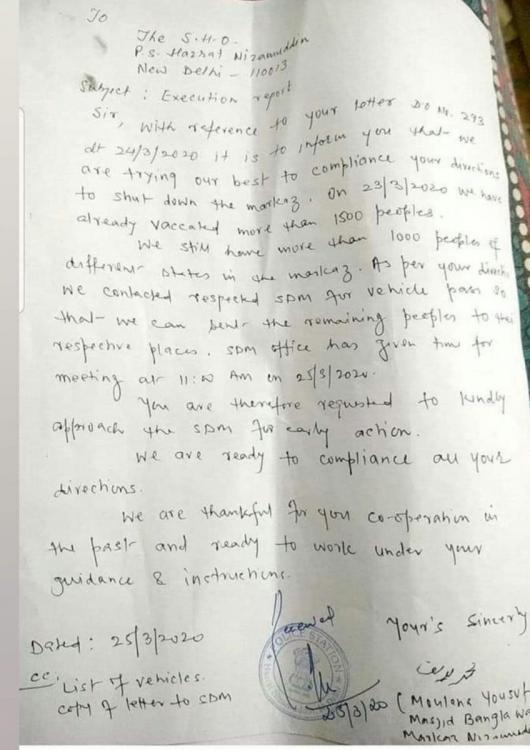 To
The S.H.O.
P.S. Hazrat Nizamuddin
New Delhi - 110013
Subject : Execution report
Sir,
With reference to your letter D.O No. 293
dt 24/3/2020 it is to inform you that we
are trying our best to compliance your directions
to shut down the markaz. On 23/3/2020 we have
already vaccated more than 1500 peoples.
We still have more than 1000 peoples of
different states in the markaz. As per your
we contacted respected SDM for vehicle pass so
that we can sent the remaining peoples to
respective places. SDM office has given time for
meeting at 11:00 AM on 25/3/2020.
You are therefore requested to kindly
approach the SDM for early action.
We are ready to compliance all your
directions.
We are thankful for you co-operation in
the past and ready to work under your
guidance & instructions.
Received
Your's Sincerly
POLICE STATION
Dated : 25/3/2020
25/3/20
cc.
List of vehicles.
copy of letter to SDM
(Moulana Yousuf
Masjid Bangla Wa
Markaz Nizamudd